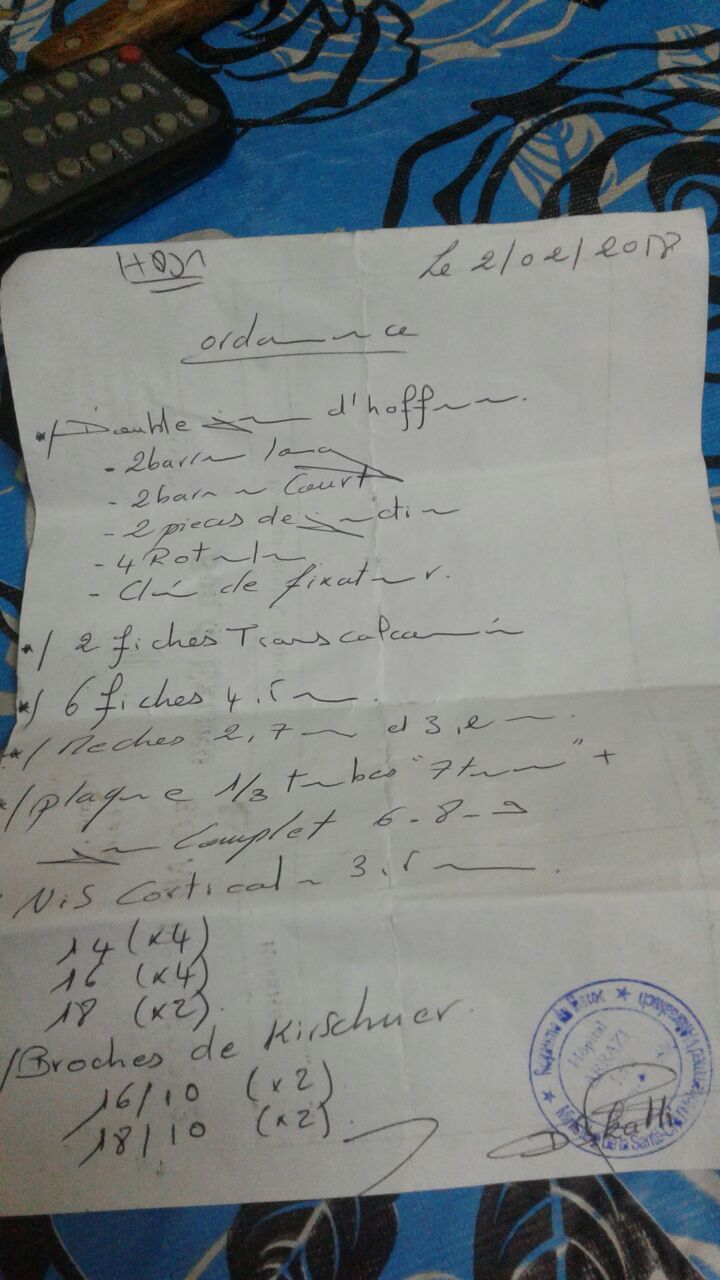 Le 2/02/2018
ordonnance
*/ Double jeu d'hoffmann.
- 2 barres long
- 2 barres court
- 2 pieces de jonction
- 4 Rotules
- Clé de fixateur.
*/ 2 fiches Transcalcanéen
*/ 6 fiches 4,5mm.
*/ Meches 2,7mm et 3,2mm.
*/ plaque 1/3 tubes "7trous" +
jeu Complet 6-8-9
Vis Cortical 3,5mm.
14 (x4)
16 (x4)
18 (x2)
/ Broches de Kirschner.
16/10 (x2)
18/10 (x2)
Royaume du Maroc
Hôpital
ARRAZY
Ministère de la Santé